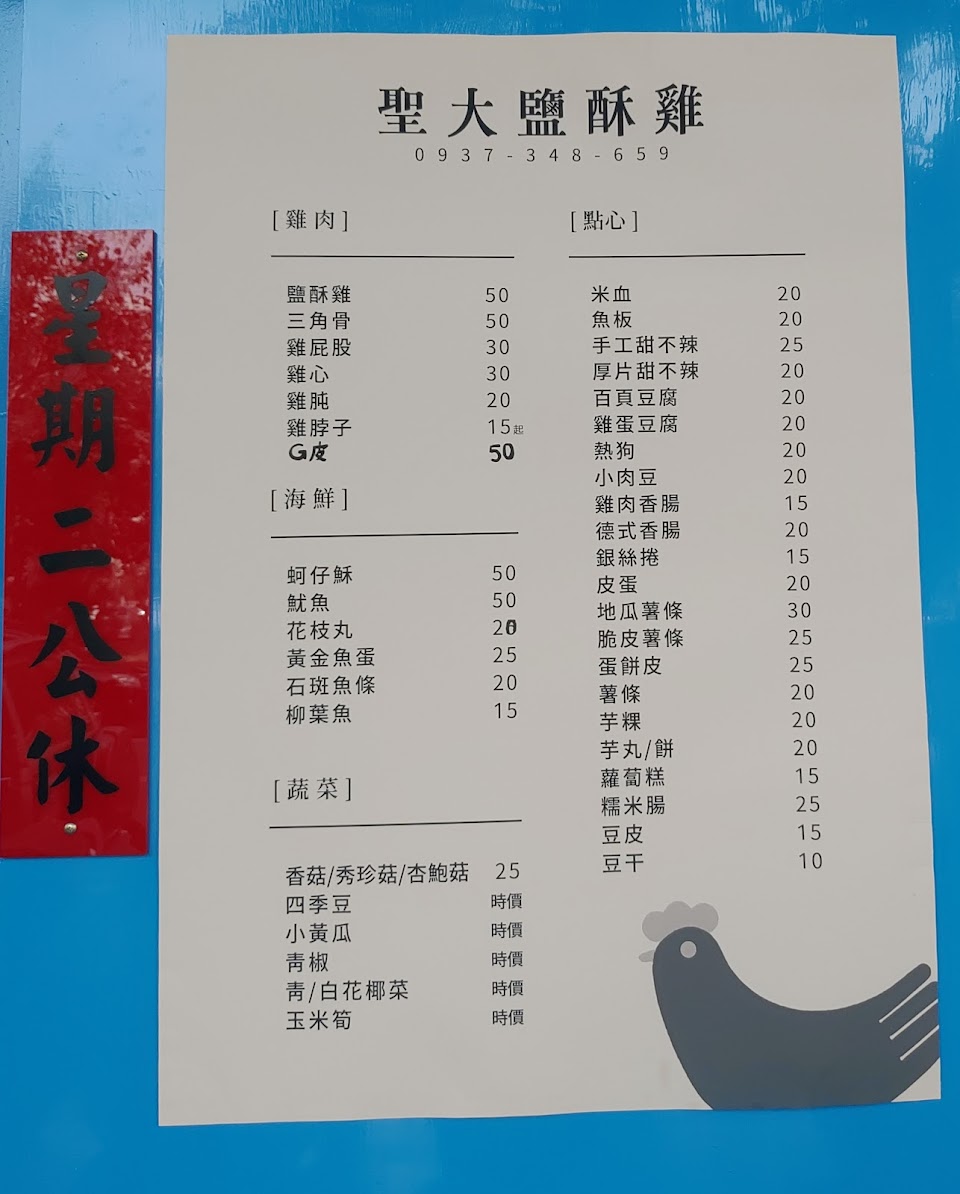 聖大鹽酥雞
0937-348-659
星期二公休
[雞肉]
鹽酥雞 50
三角骨 50
雞屁股 30
雞心 30
雞肫 20
雞脖子 15起
G皮 50
[海鮮]
蚵仔酥 50
魷魚 50
花枝丸 20
黃金魚蛋 25
石斑魚條 20
柳葉魚 15
[蔬菜]
香菇/秀珍菇/杏鮑菇 25
四季豆 時價
小黃瓜 時價
青椒 時價
青/白花椰菜 時價
玉米筍 時價
[點心]
米血 20
魚板 20
手工甜不辣 25
厚片甜不辣 20
百頁豆腐 20
雞蛋豆腐 20
熱狗 20
小肉豆 20
雞肉香腸 15
德式香腸 20
銀絲捲 15
皮蛋 20
地瓜薯條 30
脆皮薯條 25
蛋餅皮 25
薯條 20
芋粿 20
芋丸/餅 20
蘿蔔糕 15
糯米腸 25
豆皮 15
豆干 10